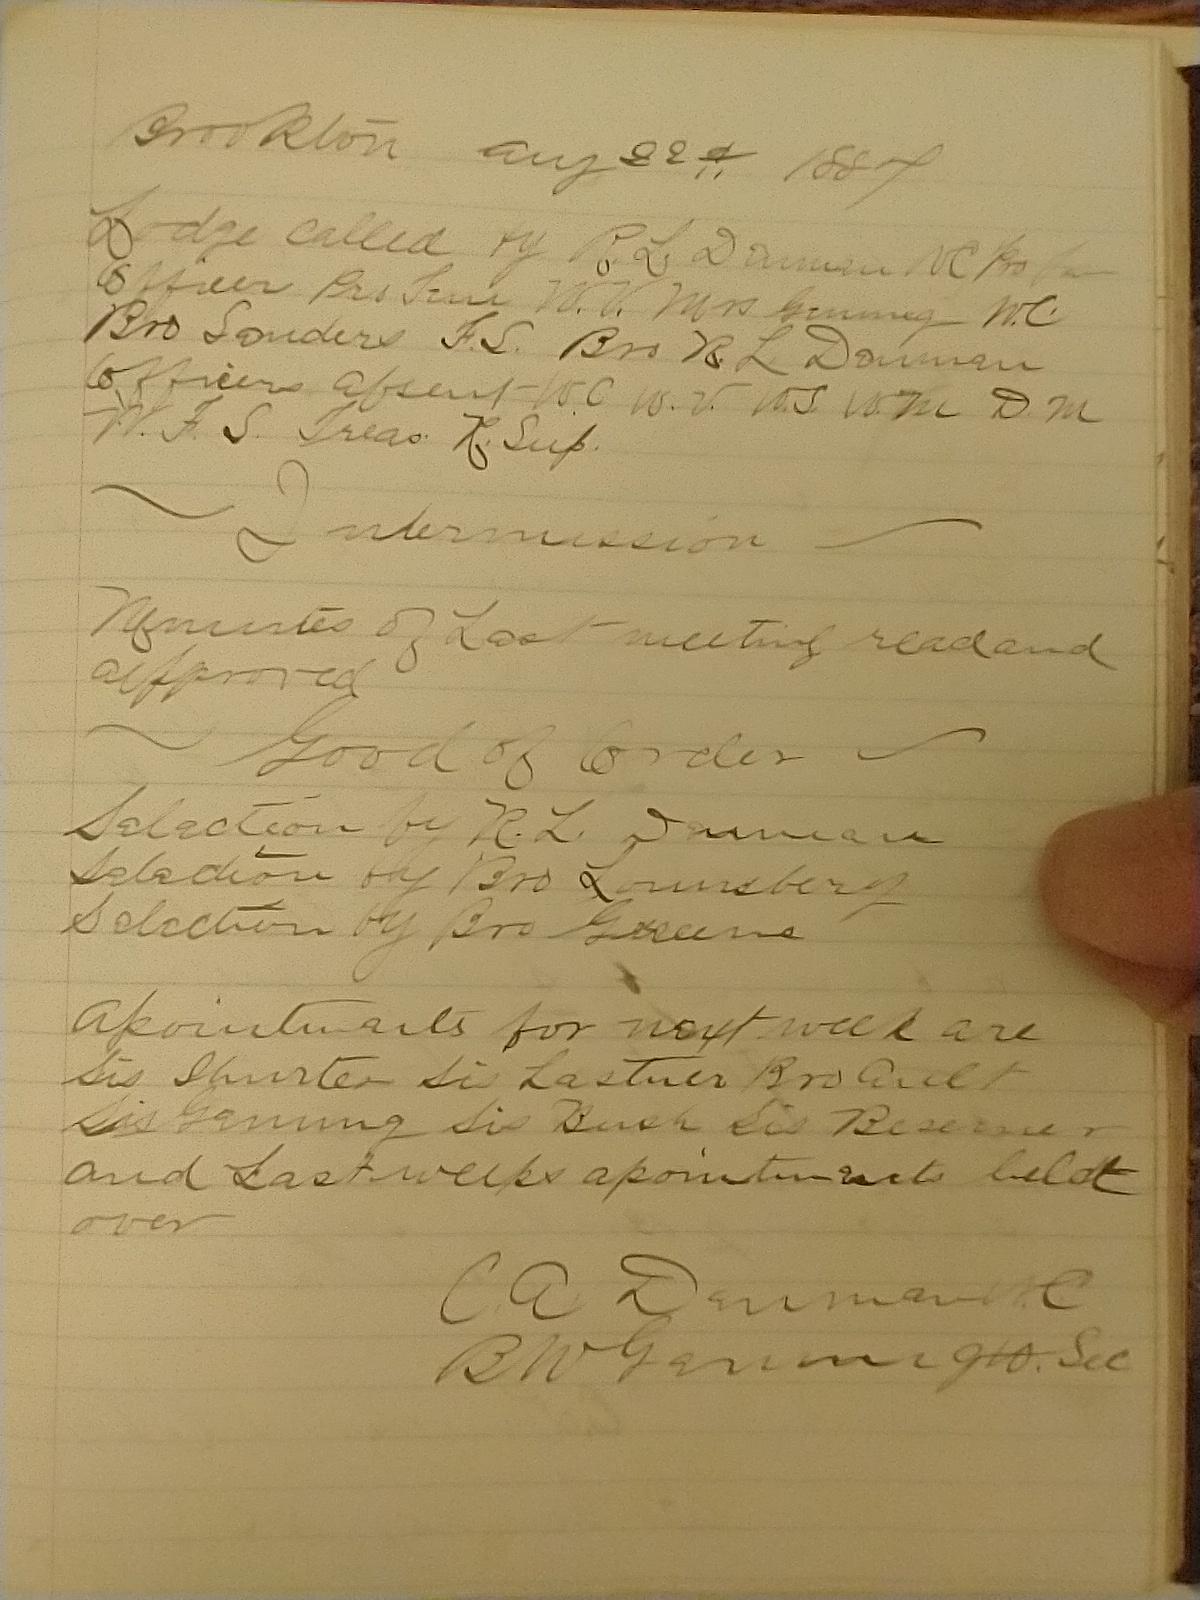 Brookton Aug 22nd 1887
Lodge called by R. L. Denman W C Pro Tem
Officer Pro Tem W. V. Mrs Genung W.C.
Bro Sanders F.S. Bro R L Denman
Officers absent W.C W.V. W.S. W.M D.M
W. F. S. Treas. R. Sup.
Intermission
Minutes of Last meeting read and
approved
Good of Order
Selection by R. L. Denman
Selection by Bro Lounsbery
Selection by Bro Greene
Apointments for next week are
Sis Sis Lastner Bro Ault
Sis Genung Sis Bush Sis
and Last weeks apointments held
over
C. A Denman W.C
B W Genung W. Sec